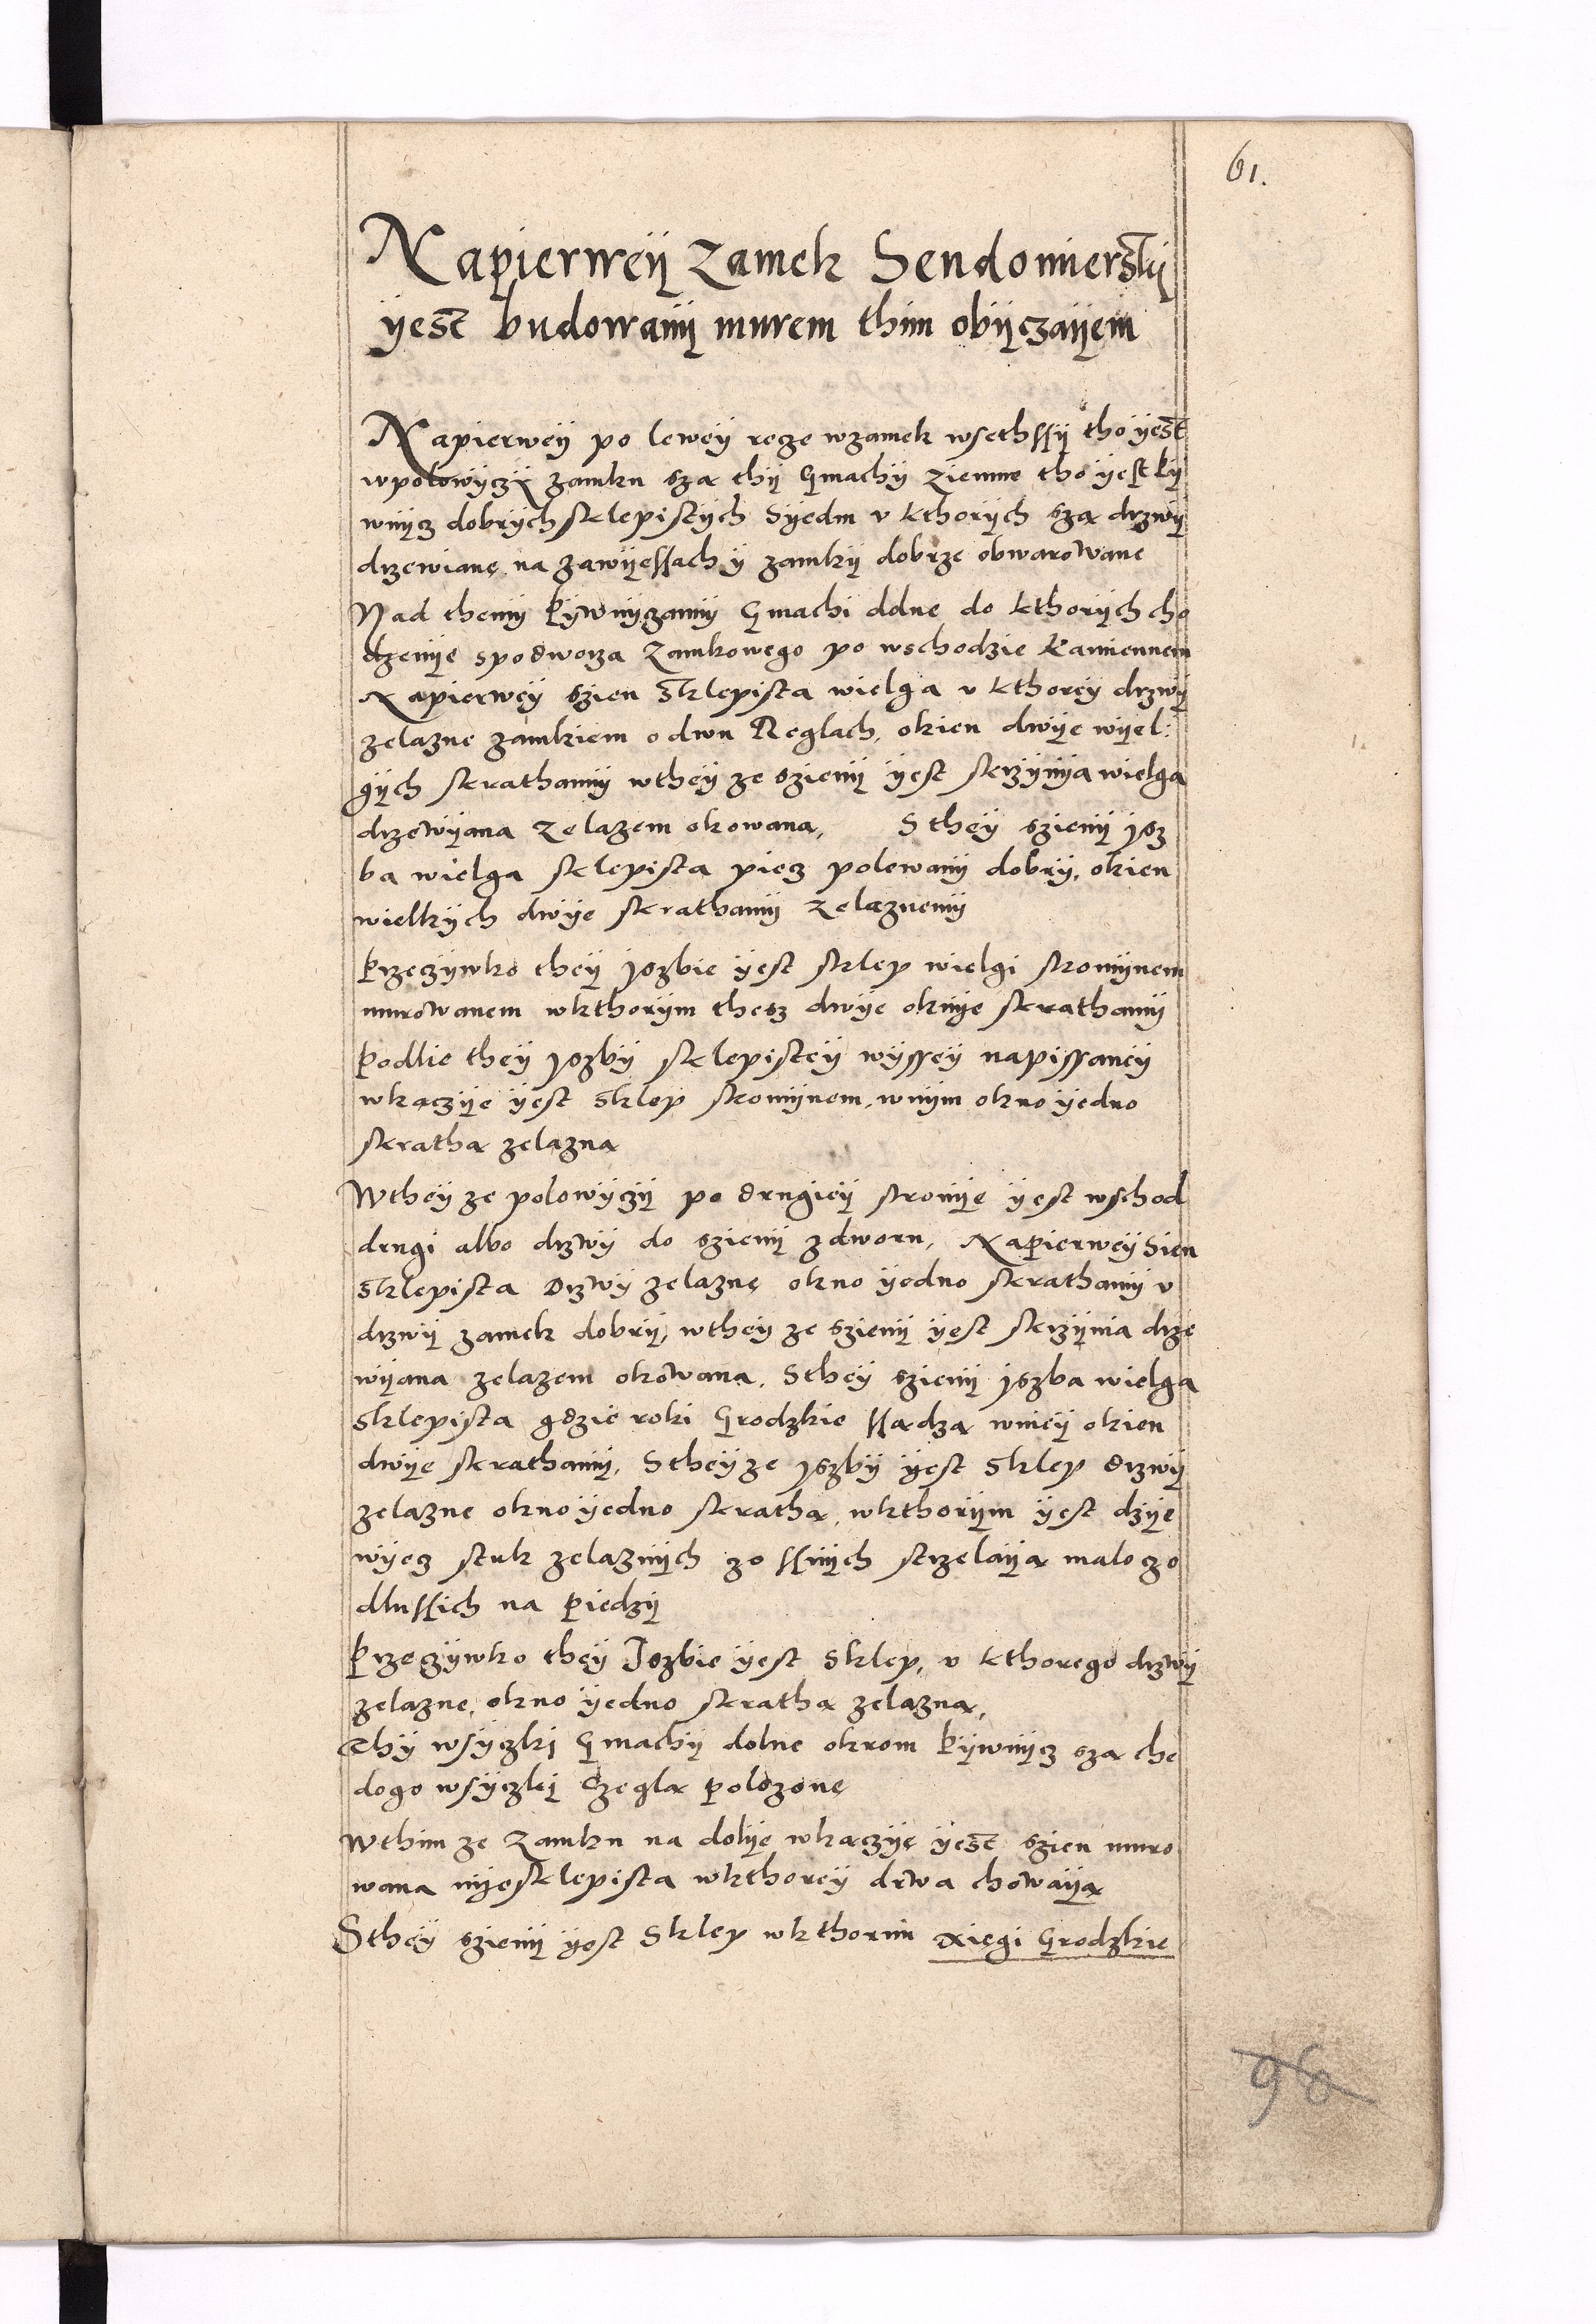 61.
Napierweÿ Zamek Sendomierskÿ
ÿest budowanÿ murem thim obÿczaÿem
Napierweÿ po leweÿ recze wzamek wsethssÿ tho ÿest
wpolowÿczÿ zamku sza thÿ Gmachÿ Ziemne tho ÿest kÿ
wnÿcz dobrÿch sklepistÿch Sÿedm v kthorÿch sza drzwÿ
drzewiane na zawÿessach ÿ zamkÿ dobrze obwarowane
Nad themÿ kÿwnÿczamÿ Gmachi dolne do kthorÿch cho
dzenÿe spodworza Zamkowego po wschodzie kamiennem
Napierweÿ szien sklepista wielga v kthoreÿ drzwÿ
zelazne zamkiem o dwu Reglach, okien dwÿe wÿel:
gÿch skrathamÿ wtheÿ ze szienÿ ÿest skrzÿnÿa wielga
drzewÿana zelazem okowana, S theÿ szienÿ ysz
ba wielga sklepista piecz polewanÿ dobrÿ, okien
wielkÿch dwÿe skrathamÿ zelaznemÿ
Przeczÿwko theÿ yszbie ÿest sklep wielgi skomÿnem
murowanem wkthorÿm thesz dwÿe oknÿe skrathamÿ
Podlie theÿ yszbÿ sklepisteÿ wÿsseÿ napissaneÿ
wkaczÿe ÿest sklep skomÿnem, wnÿm okno ÿedno
skratha zelazna
Wtheÿ ze polowÿczÿ po drugieÿ stronÿe ÿest wschod
drugi albo drzwÿ do szienÿ zdworu, Napierweÿ Sien
sklepista Drzwÿ zelazne okno ÿedno skrathamÿ v
drzwÿ zamek dobrÿ, wtheÿ ze szienÿ ÿest skrzÿnia drze
wÿana zelazem okowana, Stheÿ szienÿ yszba wielga
sklepista gdzie roki Grodzkie ssadza wnieÿ okien
dwÿe skrathamÿ, Stheÿ ze yszbÿ ÿest sklep drzwÿ
zelazne okno ÿedno skratha, wkthorÿm ÿest dzÿe
wÿecz stuk zelaznÿch zo ssnÿch strzelaÿa malo czo
dlussich na piedzÿ
Przeczÿwko theÿ Iszbie ÿest sklep, v kthorego drzwÿ
zelazne, okno ÿedno skratha zelazna,
Thÿ wsÿczki Gmachÿ dolne okrom kÿwnÿcz sza che
dogo wsÿczkÿ Czegla polozone
Wthim ze Zamku na dolÿe wkaczÿe ÿest szien muro
wana nÿesklepista wkthoreÿ drwa chowaÿa
Stheÿ szienÿ ÿest sklep wkthorim xiegi Grodzkie
98